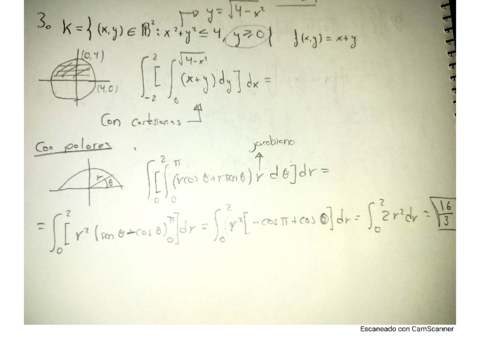 y = √(4 - x²)
3. K = {(x,y) ∈ ℝ² : x² + y² ≤ 4, y ≥ 0} f(x,y) = x + y
(0,4)
(4,0)
∫_{-2}^{2} [∫_{0}^{√(4-x²)} (x+y) dy] dx =
Con cartesianas
Con polares
jacobiano
r
θ
∫_{0}^{2} [∫_{0}^{π} (r cos θ + r sen θ) r dθ] dr =
= ∫_{0}^{2} [r² (sen θ - cos θ)_{0}^{π}] dr = ∫_{0}^{2} r² [-cos π + cos 0] dr = ∫_{0}^{2} 2r² dr = 16/3
Escaneado con CamScanner